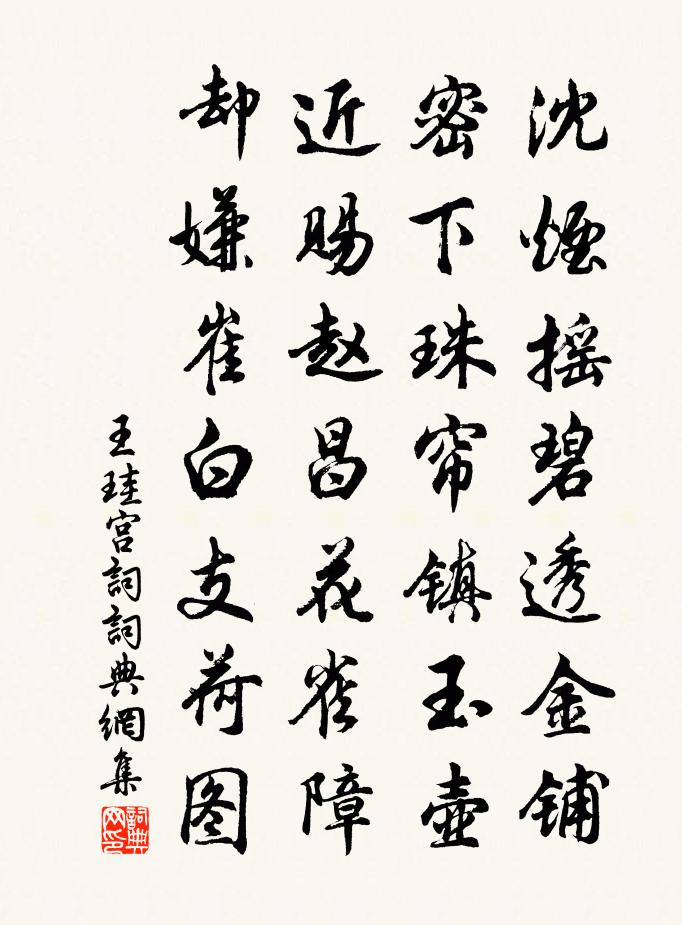 沈烟摇碧透金铺
密下珠帘镇玉壶
近赐赵昌花雀障
却嫌崔白支荷图
王珪宫詞詞典網集
詞典网印